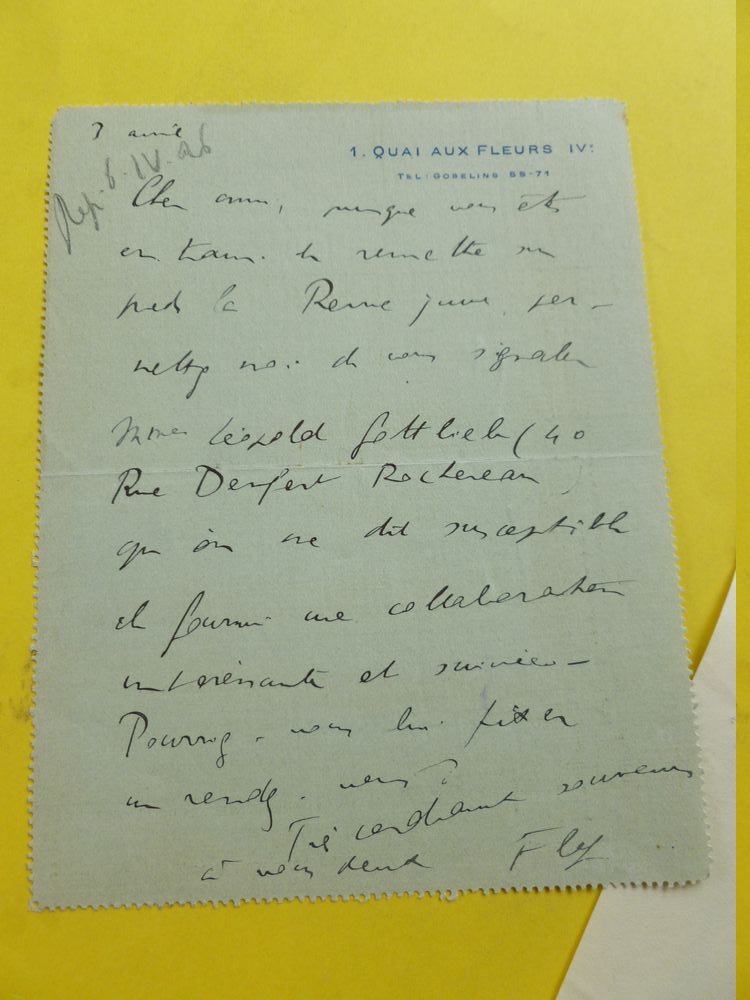 3 avril
1. QUAI AUX FLEURS IVᵉ
TEL: GOBELINS 55-71
Rep. 6.IV.26
Cher ami, puisque vous êtes
en train de remettre sur
pieds la Revue juive, per-
mettez moi de vous signaler
Mme Léopold Gottlieb (40
Rue Denfert Rochereau,
qu'on me dit susceptible
de fournir une collaboration
intéressante et suivie –
Pourriez-vous lui fixer
un rendez-vous?
Très cordiaux souvenirs
à vous deux